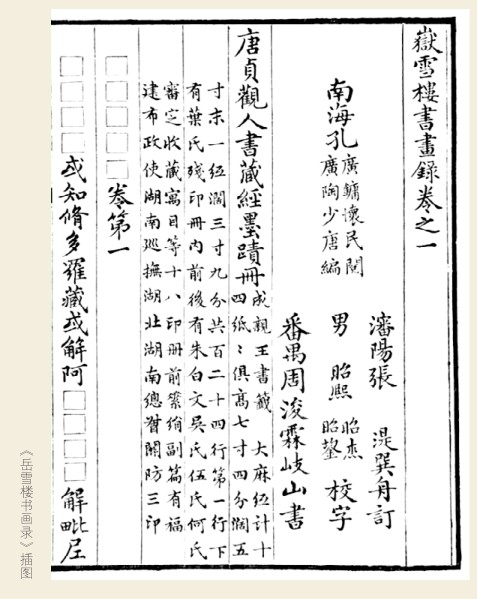 嶽雪樓書畫錄卷之一
瀋陽張 湜巽舟訂
南海孔
廣鏞懷民閱
廣陶少唐編
男
昭熙
昭杰
昭鋆
校字
番禺周浚霖岐山書
唐貞觀人書藏經墨蹟冊
成親王書籤 大麻紙計十
四紙紙俱高七寸四分濶五
寸末一紙濶三寸九分共百二十四行第一行下
有葉氏殘印冊內前後有朱白文吳氏伍氏何氏
審定收藏寓目等十八印冊前綮綃副篇有福
建布政使湖南巡撫湖北湖南總督關防三印
□□□□ 卷第一
□□□□或知脩多羅藏或解阿□□□□解毗尼
《岳雪楼书画录》插图